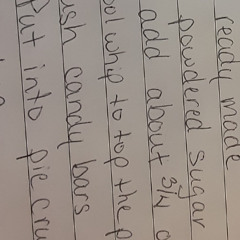 ready made
powdered sugar
add about 3/4
ol whip to top the p
ush candy bars
Put into pie cru